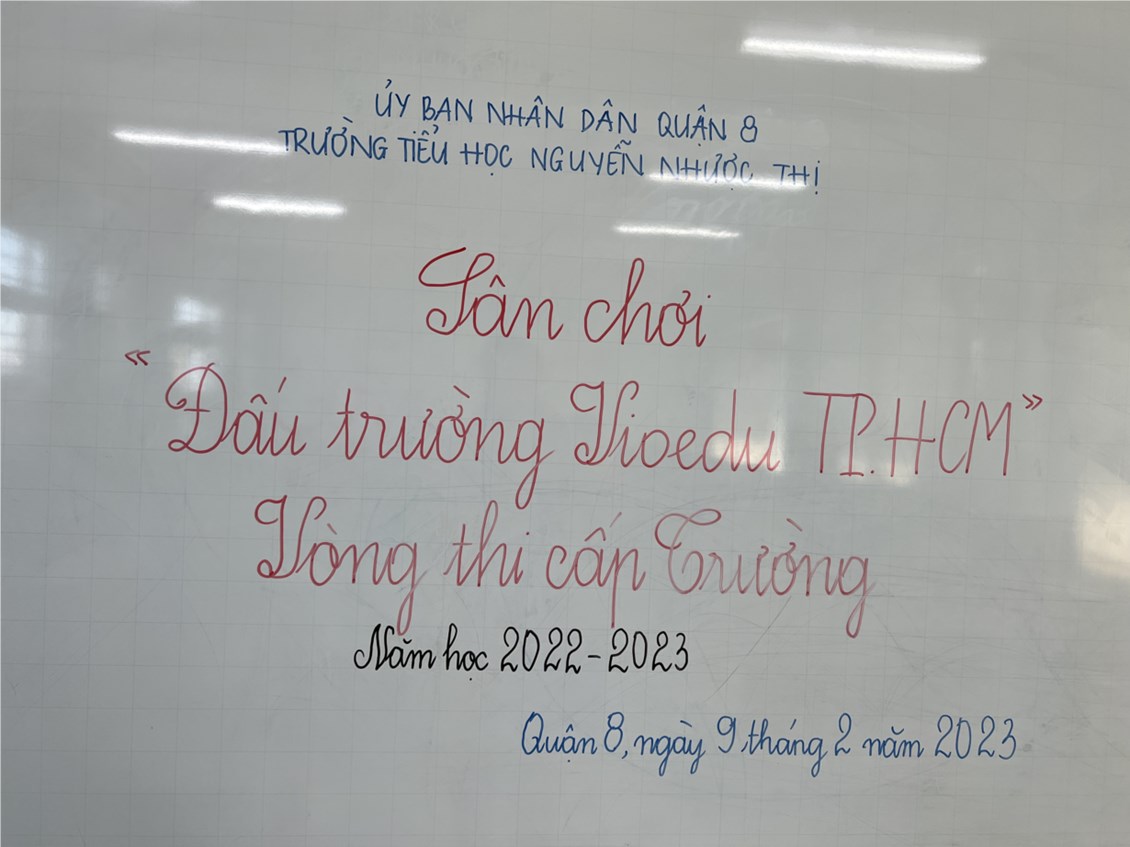 ỦY BAN NHÂN DÂN QUẬN 8
TRƯỜNG TIỂU HỌC NGUYỄN NHƯỢC THỊ
Sân chơi
“Đấu trường Vioedu TP.HCM”
Vòng thi cấp Trường
Năm học 2022-2023
Quận 8, ngày 9 tháng 2 năm 2023